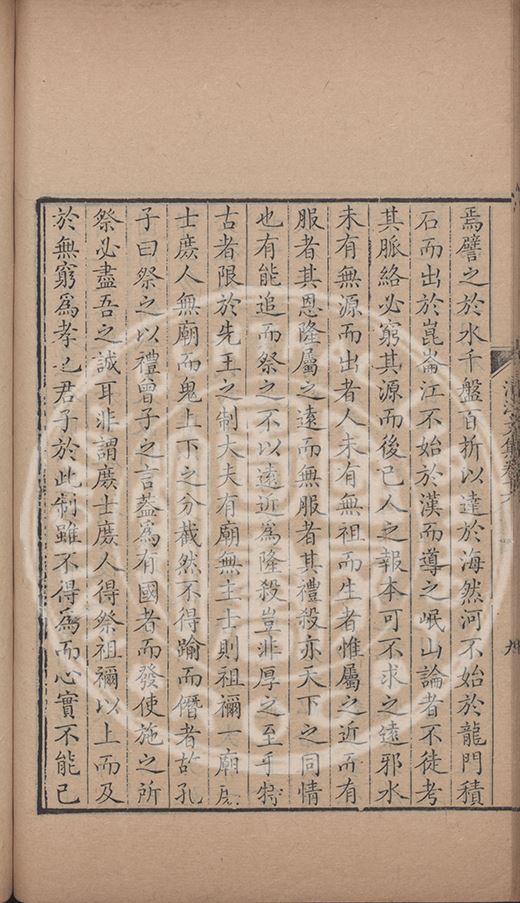 焉譬之於水千盤百折以達於海然河不始於龍門積
石而出於崑崙江不始於漢而導之岷山論者不徒考
其脈絡必窮其源而後已人之報本可不求之遠邪水
未有無源而出者人未有無祖而生者惟屬之近而有
服者其恩隆屬之遠而無服者其禮殺亦天下之同情
也有能追而祭之不以遠近為隆殺豈非厚之至乎特
古者限於先王之制大夫有廟無主士則祖禰一廟庶
士庶人無廟而鬼上下之分截然不得踰而僭者故孔
子曰祭之以禮曾子之言葢為有國者而發使施之所
祭必盡吾之誠耳非謂庶士庶人得祭祖禰以上而及
於無窮為孝也君子於此制雖不得為而心實不能已